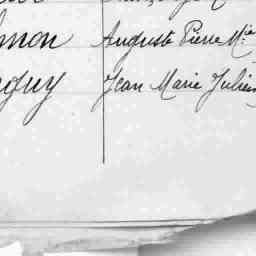 mon Auguste Pierre Mie
guy Jean Marie Julien